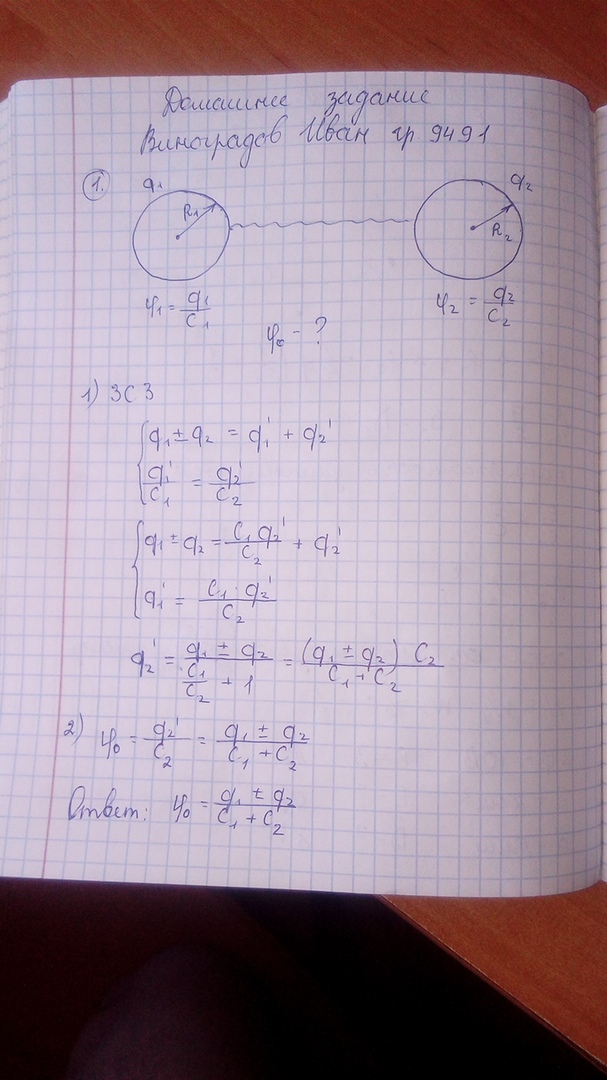 Домашнее задание
Виноградов Иван гр 9491
1. q₁ q₂
R₁ R₂
φ₁ = q₁/C₁ φ₂ = q₂/C₂
φ₀ - ?
1) ЗСЗ
q₁ ± q₂ = q₁' + q₂'
q₁'/C₁ = q₂'/C₂
q₁ ± q₂ = C₁ q₂'/C₂ + q₂'
q₁' = C₁ · q₂'/C₂
q₂' = (q₁ ± q₂)/(C₁/C₂ + 1) = (q₁ ± q₂) C₂/(C₁ + C₂)
2) φ₀ = q₂'/C₂ = (q₁ ± q₂)/(C₁ + C₂)
Ответ: φ₀ = (q₁ ± q₂)/(C₁ + C₂)